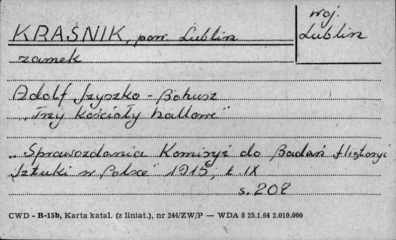 KRAŚNIK, pow. Lublin
woj.
Lublin
zamek
Adolf Szyszko-Bohusz
„Trzy kościoły hallowe"
„Sprawozdania Komisyi do Badań Historyi
Sztuki w Polsce" 1915, t. IX
s. 208
CWD - B-15b, Karta katal. (z liniat.), nr 244/ZW/P — WDA 8 25.1.64 2.010.000